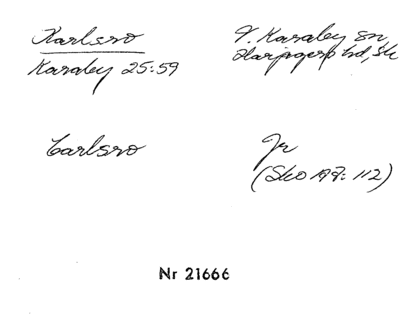 Karlsro
Karaby 25:59
V. Karaby sn,
Harjagers hd, Sk
Carlsro
Jr
(Sko 197: 112)
Nr 21666